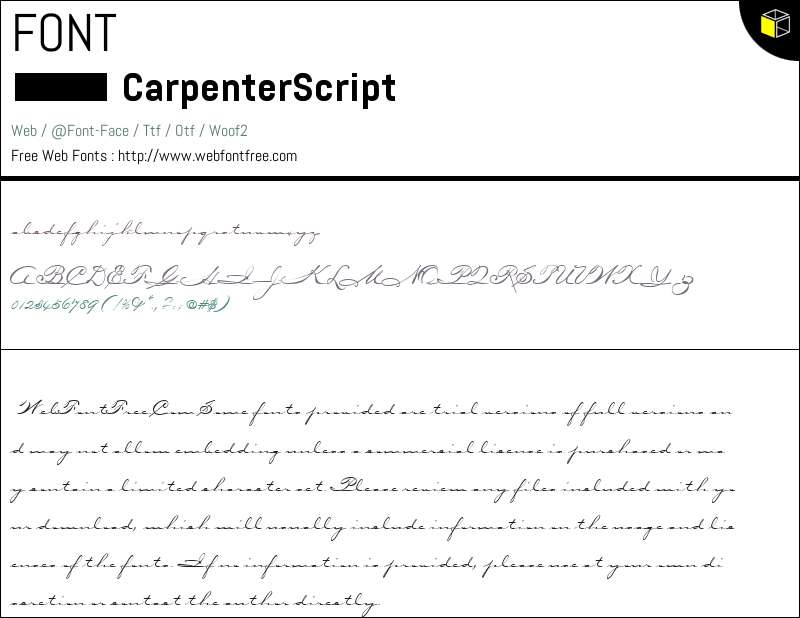 FONT
CarpenterScript
Web / @Font-Face / Ttf / Otf / Woof2
Free Web Fonts : http://www.webfontfree.com
abcdefghijklmnopqrstuvwxyz
ABCDEFGHIJKLMNOPQRSTUVWXYZ
0123456789(!%&*.,?:;@#$)
WebFontFree.Com Some fonts provided are trial versions of full versions an
d may not allow embedding unless a commercial license is purchased or ma
y contain a limited character set. Please review any files included with yo
ur download, which will usually include information on the usage and lic
enses of the fonts. If no information is provided, please use at your own di
scretion or contact the author directly.